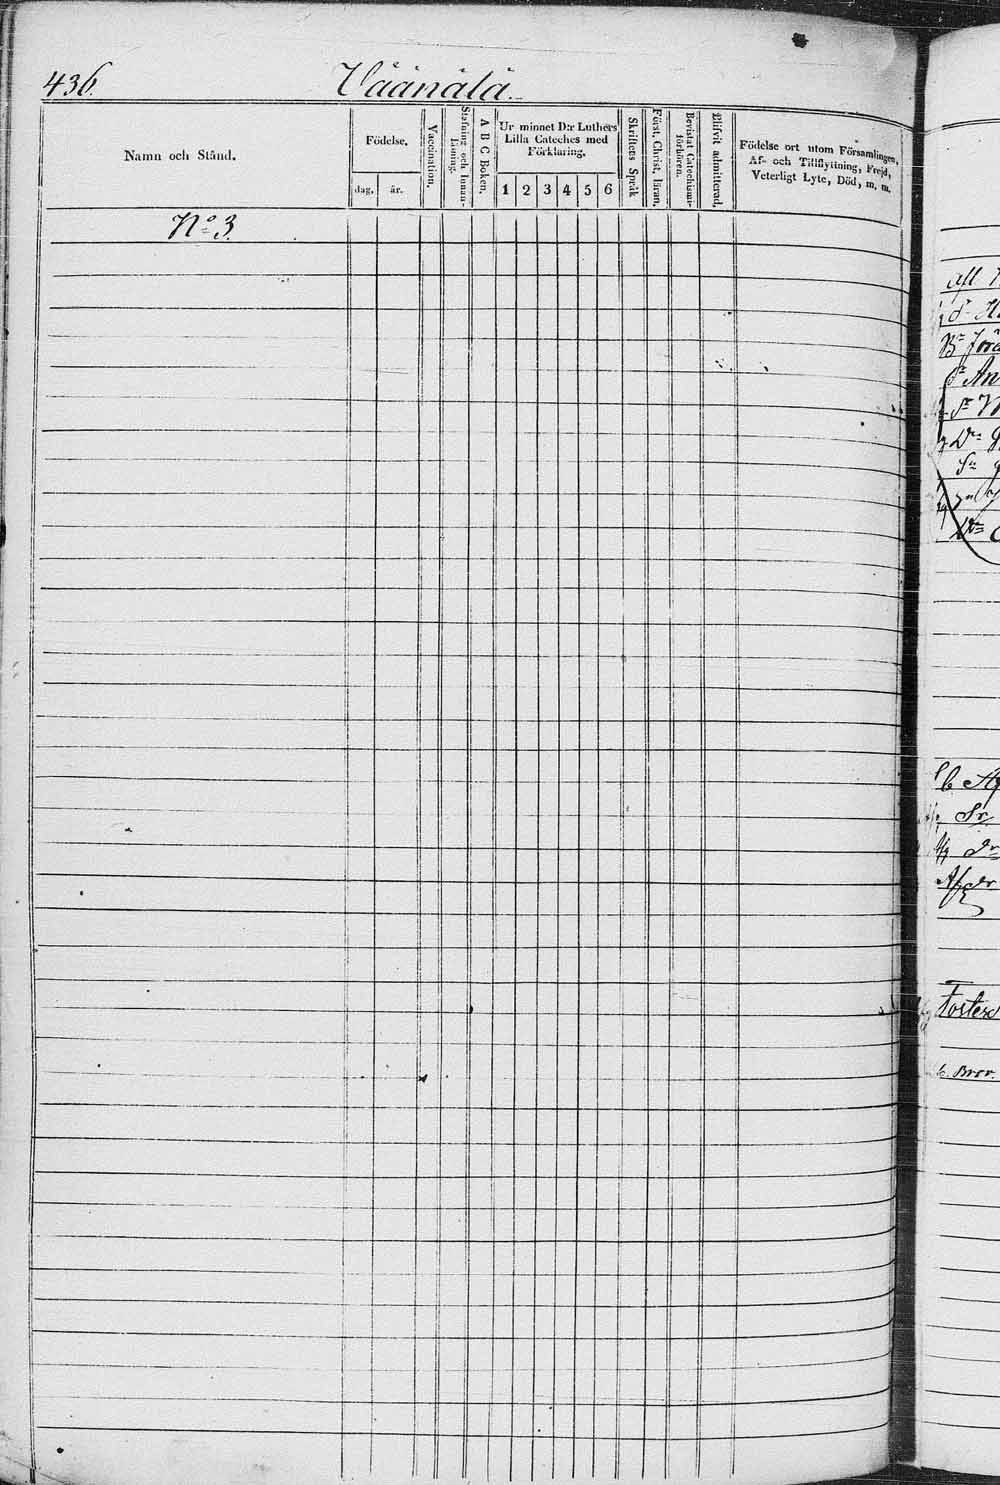 436.
Väänälä.
Namn och Stånd.
Födelse.
dag.
år.
Vaccination.
Stafning och Innanläsning.
A B C Boken.
Ur minnet D:r Luthers
Lilla Cateches med
Förklaring.
1 2 3 4 5 6
Skriftens Språk
Först. Christ. läran.
Bevistat Catechismi-
förhören.
Blifvit admitterad.
Födelse ort utom Församlingen,
Af- och Tillflyttning, Frejd,
Veterligt Lyte, Död, m. m.
No 3.